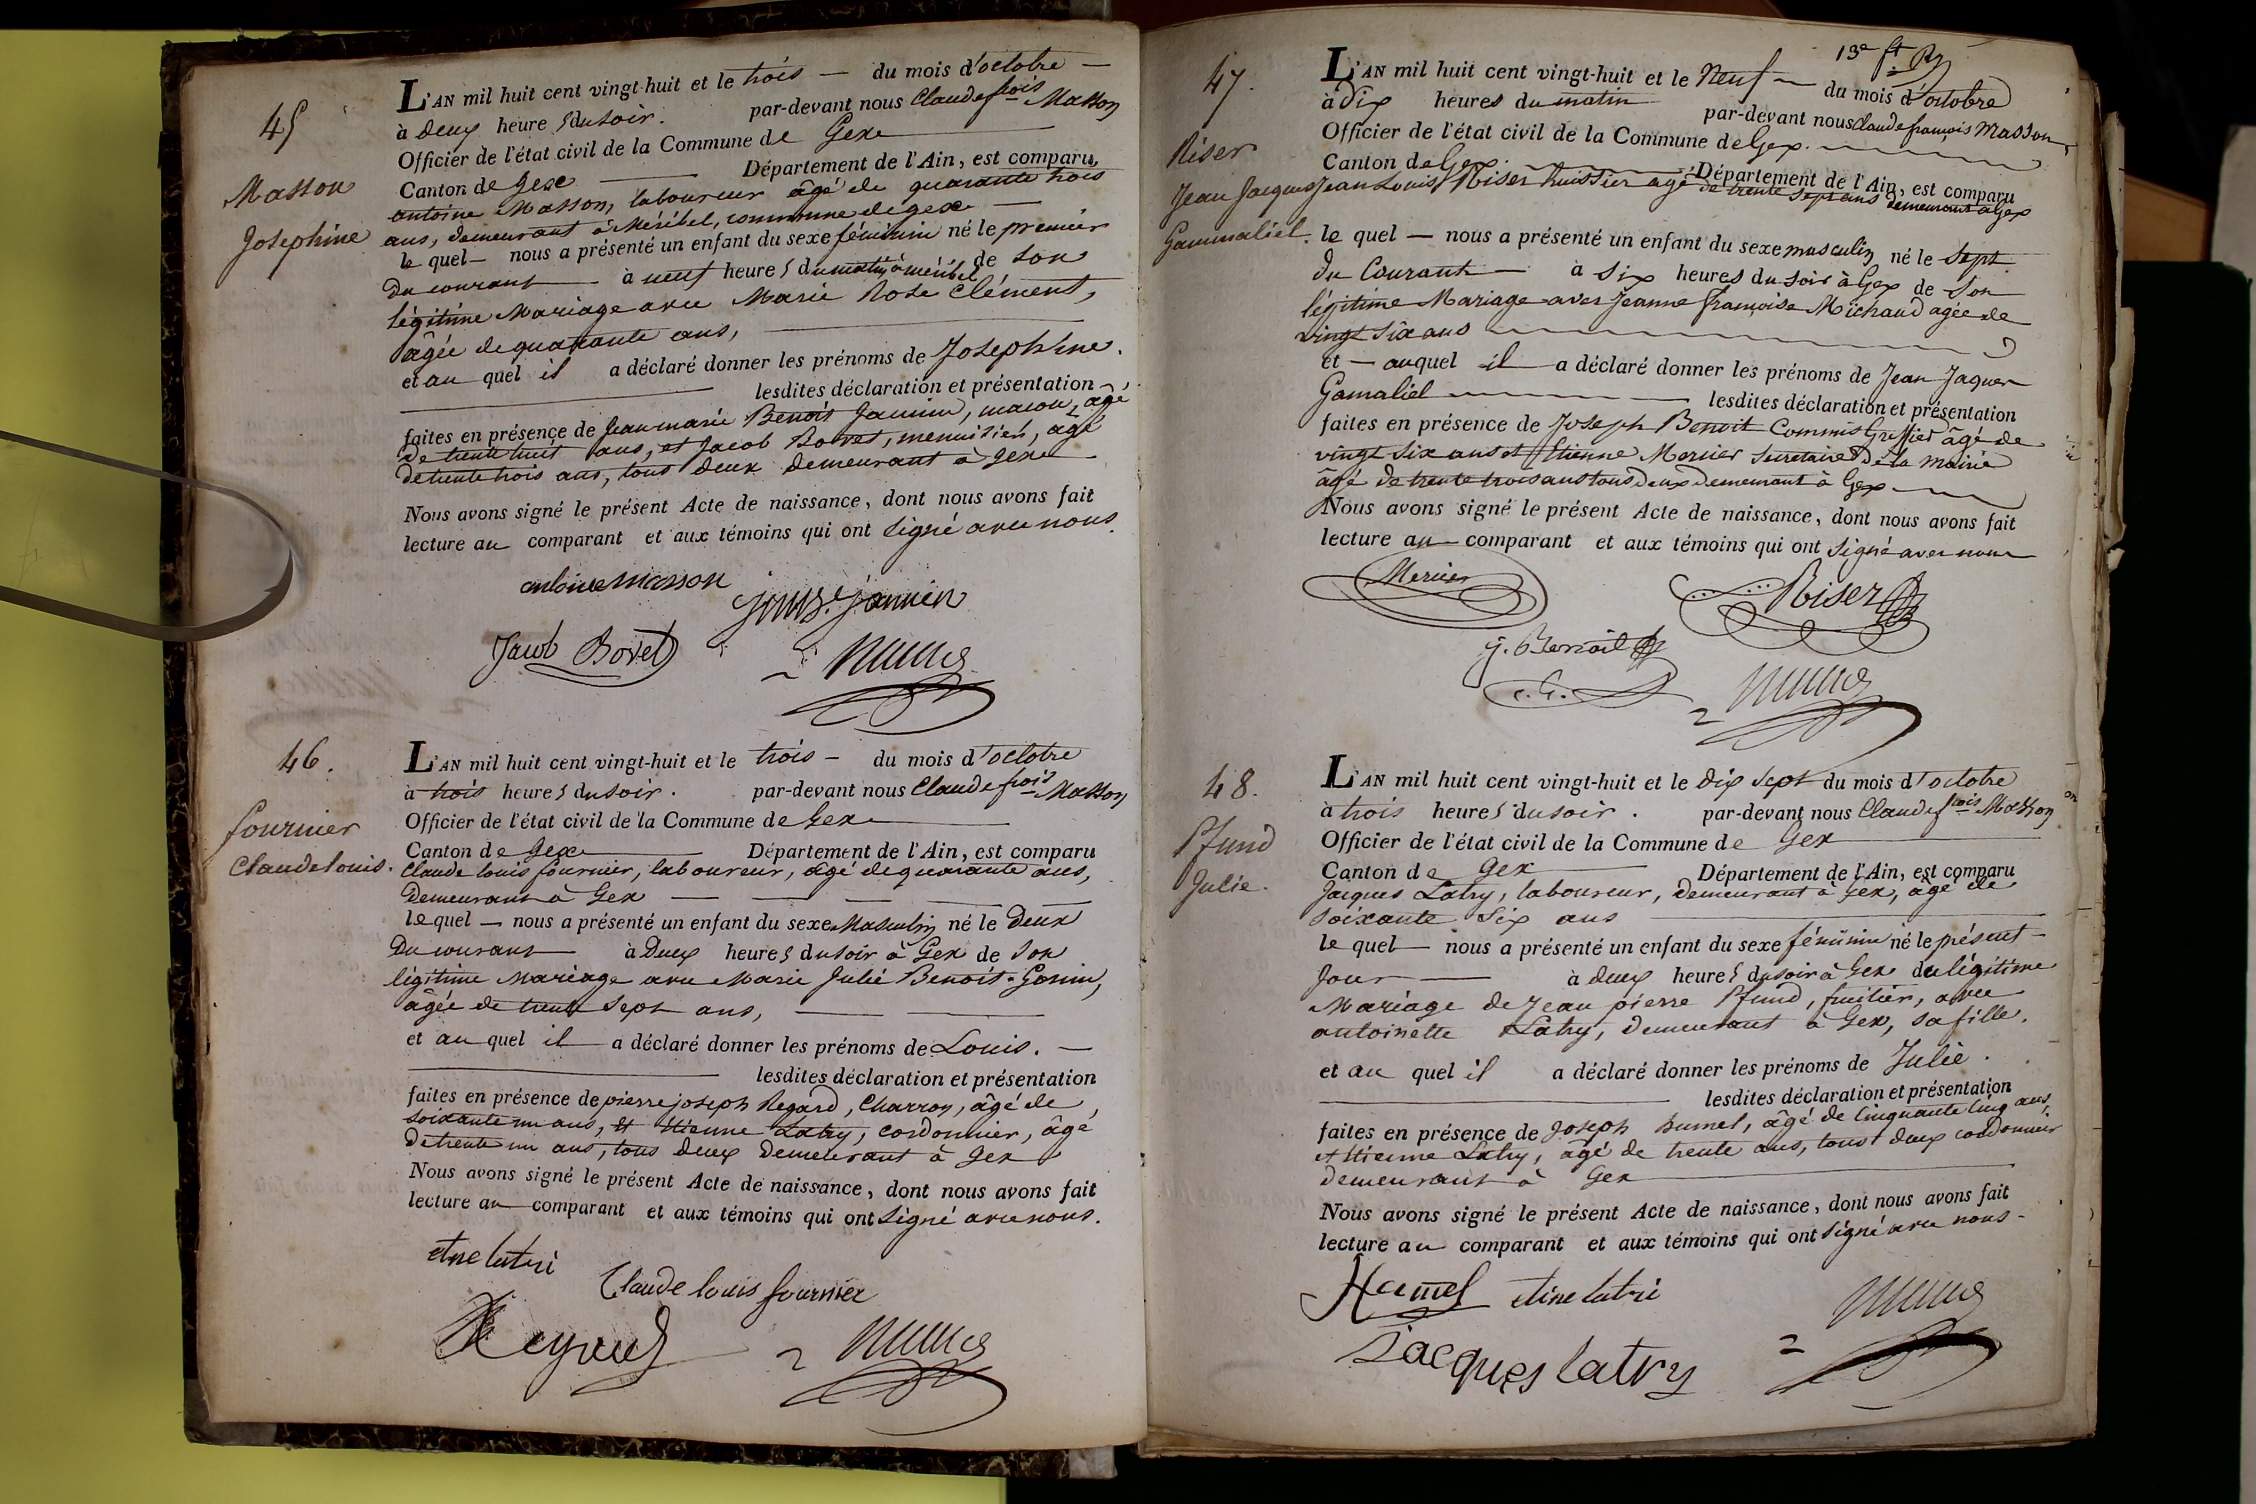 45
Masson
Josephine
L'AN mil huit cent vingt-huit et le trois — du mois d'octobre —
à deux heures du soir. par-devant nous Claude fçois Masson
Officier de l'état civil de la Commune de Gex
Canton de Gex Département de l'Ain, est comparu
antoine Masson, laboureur âgé de quarante trois
ans, demeurant à Méribel, commune de gex —
le quel — nous a présenté un enfant du sexe féminin né le premier
du courant à neuf heures du matin à méribel de son
légitime Mariage avec Marie Rose Clément,
âgée de quarante ans,
et au quel il a déclaré donner les prénoms de Josephine.
lesdites déclaration et présentation
faites en présence de Jean marie Benoit Jannin, macon, âgé
de trente huit ans, et Jacob Bovet, menuisier, âgé
de trente trois ans, tous deux demeurant à gex
Nous avons signé le présent Acte de naissance, dont nous avons fait
lecture au comparant et aux témoins qui ont signé avec nous.
antoine masson
Jannin
Jacob Bovet
46.
fournier
Claude louis.
L'AN mil huit cent vingt-huit et le trois — du mois d'octobre
à trois heures du soir. par-devant nous Claude fçois Masson
Officier de l'état civil de la Commune de Gex
Canton de Gex Département de l'Ain, est comparu
Claude louis fournier, laboureur, âgé de quarante ans,
demeurant à Gex
le quel — nous a présenté un enfant du sexe Masculin né le deux
du courant à deux heures du soir à Gex de son
légitime Mariage avec Marie Julie Benoit-Gonin,
âgée de trente sept ans,
et au quel il a déclaré donner les prénoms de Louis. —
lesdites déclaration et présentation
faites en présence de pierre joseph Regard, Charron, âgé de
soixante un ans, et étienne Latry, cordonnier, âgé
de trente un ans, tous deux demeurant à Gex
Nous avons signé le présent Acte de naissance, dont nous avons fait
lecture au comparant et aux témoins qui ont signé avec nous.
etne latri
Claude louis fournier
13e ft
47.
Riser
Jean Jacques
Gammaliel.
L'AN mil huit cent vingt-huit et le Neuf du mois d'octobre
à dix heures du matin par-devant nous Claude françois Masson
Officier de l'état civil de la Commune de Gex.
Canton de Gex. Département de l'Ain, est comparu
Jean Louis Riser huissier agé de trente sept ans demeurant a Gex
le quel — nous a présenté un enfant du sexe masculin né le sept
du Courant — à six heures du soir à Gex de son
légitime Mariage avec Jeanne françoise Michaud agée de
vingt six ans
et — auquel il a déclaré donner les prénoms de Jean Jaques
Gamaliel lesdites déclaration et présentation
faites en présence de Joseph Benoit Commis Greffier âgé de
vingt six ans et Etienne Mercier Secretaire de la Mairie
âgé de trente trois ans tous deux demeurant à Gex
Nous avons signé le présent Acte de naissance, dont nous avons fait
lecture au comparant et aux témoins qui ont signé avec nous
Mercier
Riser
j. Benoit
c. G.
48.
Pfund
Julie.
L'AN mil huit cent vingt-huit et le dix sept du mois d'octobre
à trois heures du soir. par-devant nous Claude fçois Masson
Officier de l'état civil de la Commune de Gex
Canton de Gex Département de l'Ain, est comparu
Jacques Latry, laboureur, demeurant à Gex, âgé de
soixante six ans
le quel — nous a présenté un enfant du sexe féminin né le présent
Jour à deux heures du soir à Gex du légitime
Mariage de Jean pierre Pfund, fruitier, avec
antoinette Latry, demeurant à Gex, sa fille.
et au quel il a déclaré donner les prénoms de Julie.
lesdites déclaration et présentation
faites en présence de Joseph humel, âgé de Cinquante cinq ans,
et étienne Latry, âgé de trente ans, tous deux cordonnier
demeurant à Gex
Nous avons signé le présent Acte de naissance, dont nous avons fait
lecture au comparant et aux témoins qui ont signé avec nous
Humel etine latri
Jacques latry